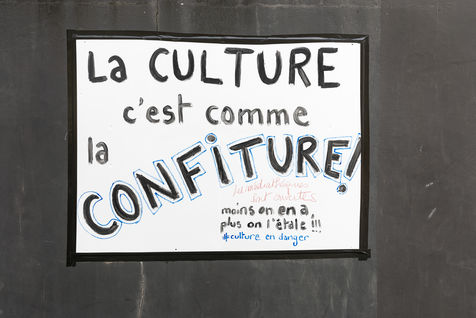 La CULTURE
c'est comme
la
CONFiTURE!
Les médiathèques
sont ouvertes
moins on en a,
plus on l'étale !!!
#culture en danger